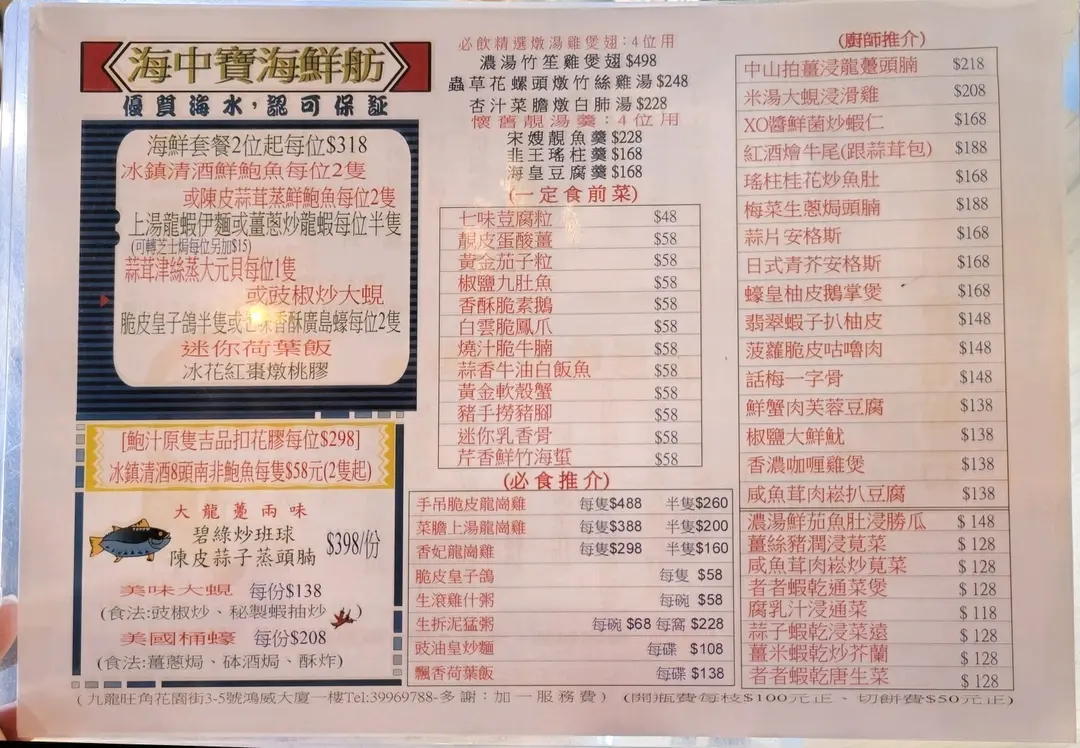 海中寶海鮮舫
優質海水，認可保証
海鮮套餐2位起每位$318
冰鎮清酒鮮鮑魚每位2隻
或陳皮蒜茸蒸鮮鮑魚每位2隻
上湯龍蝦伊麵或薑蔥炒龍蝦每位半隻
(可轉芝士焗每位另加$15)
蒜茸津絲蒸大元貝每位1隻
或豉椒炒大蜆
脆皮皇子鴿半隻或七味香酥廣島蠔每位2隻
迷你荷葉飯
冰花紅棗燉桃膠
[鮑汁原隻吉品扣花膠每位$298]
冰鎮清酒8頭南非鮑魚每隻$58元(2隻起)
大龍躉兩味
碧綠炒班球
陳皮蒜子蒸頭腩
$398/份
美味大蜆 每份$138
(食法:豉椒炒、秘製蝦抽炒 )
美國桶蠔 每份$208
(食法:薑蔥焗、砵酒焗、酥炸)
必飲精選燉湯雞煲翅:4位用
濃湯竹笙雞煲翅 $498
蟲草花螺頭燉竹絲雞湯$248
杏汁菜膽燉白肺湯$228
懷舊靚湯羹:4位用
宋嫂靚魚羹 $228
韭王瑤柱羹 $168
海皇豆腐羹 $168
(一定食前菜)
七味荳腐粒 $48
靚皮蛋酸薑 $58
黃金茄子粒 $58
椒鹽九肚魚 $58
香酥脆素鵝 $58
白雲脆鳳爪 $58
燒汁脆牛腩 $58
蒜香牛油白飯魚 $58
黃金軟殼蟹 $58
豬手撈豬腳 $58
迷你乳香骨 $58
芹香鮮竹海蜇 $58
(必食推介)
手吊脆皮龍崗雞 每隻$488 半隻$260
菜膽上湯龍崗雞 每隻$388 半隻$200
香妃龍崗雞 每隻$298 半隻$160
脆皮皇子鴿 每隻 $58
生滾雞什粥 每碗 $58
生拆泥猛粥 每碗 $68 每窩 $228
豉油皇炒麵 每碟 $108
飄香荷葉飯 每碟 $138
(廚師推介)
中山拍薑浸龍躉頭腩 $218
米湯大蜆浸滑雞 $208
XO醬鮮菌炒蝦仁 $168
紅酒燴牛尾(跟蒜茸包) $188
瑤柱桂花炒魚肚 $168
梅菜生蔥焗頭腩 $188
蒜片安格斯 $168
日式青芥安格斯 $168
蠔皇柚皮鵝掌煲 $168
翡翠蝦子扒柚皮 $148
菠蘿脆皮咕嚕肉 $148
話梅一字骨 $148
鮮蟹肉芙蓉豆腐 $138
椒鹽大鮮魷 $138
香濃咖喱雞煲 $138
咸魚茸肉崧扒豆腐 $138
濃湯鮮茄魚肚浸勝瓜 $ 148
薑絲豬潤浸莧菜 $ 128
咸魚茸肉崧炒莧菜 $ 128
者者蝦乾通菜煲 $ 128
腐乳汁浸通菜 $ 118
蒜子蝦乾浸菜遠 $ 128
薑米蝦乾炒芥蘭 $ 128
者者蝦乾唐生菜 $ 128
(九龍旺角花園街3-5號鴻威大廈一樓Tel:39969788-多謝:加一服務費) (開瓶費每枝$100元正、切餅費$50元正)